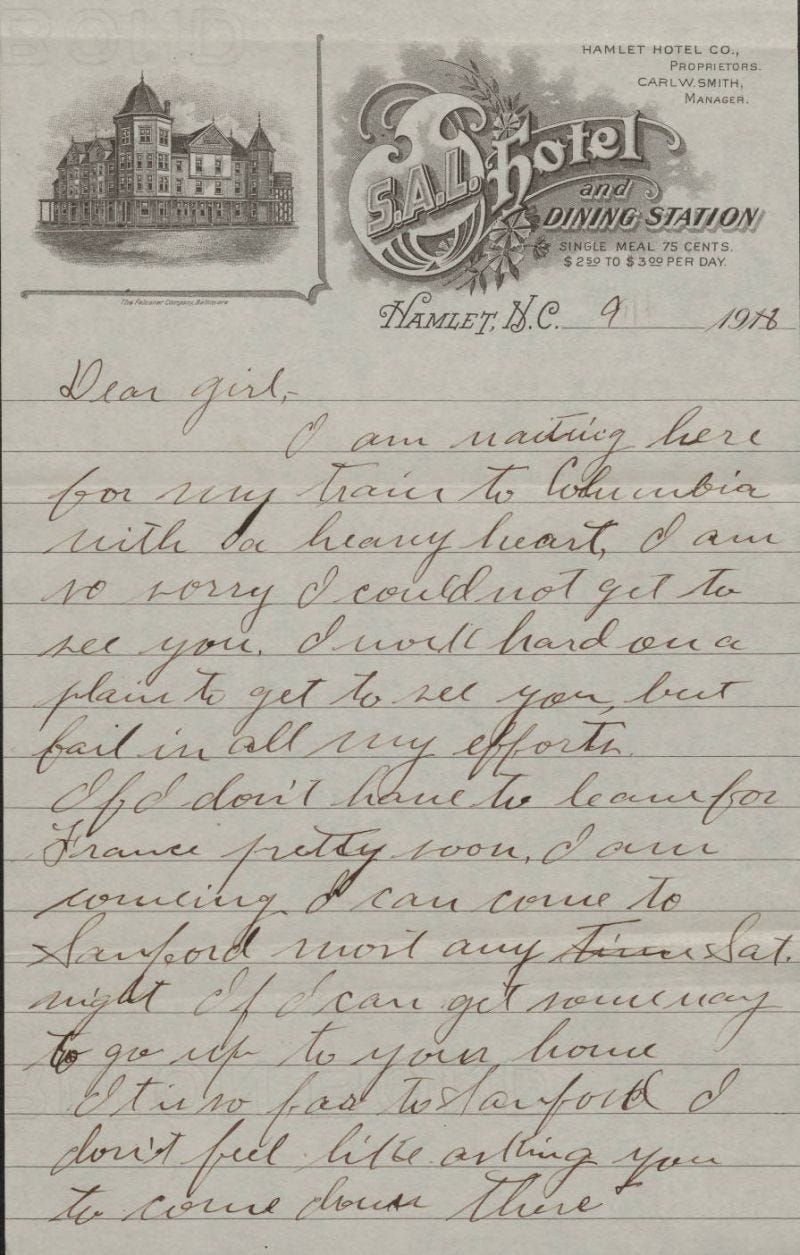 HAMLET HOTEL CO.,
PROPRIETORS.
CARL W. SMITH,
MANAGER.
S.A.L. Hotel
and
DINING STATION
SINGLE MEAL 75 CENTS.
$2.50 TO $3.00 PER DAY.
The Falconer Company, Baltimore
HAMLET, N.C. 9 1918
Dear girl,-
I am waiting here
for my train to Columbia
with a heavy heart, I am
so sorry I could not get to
see you. I work hard on a
plain to get to see you, but
fail in all my efforts.
If I don't have to leave for
France pretty soon, I am
comeing I can come to
Sanford most any time Sat.
night If I can get someway
to go up to your home
It is so far to Sanford I
don't feel like asking you
to come down there